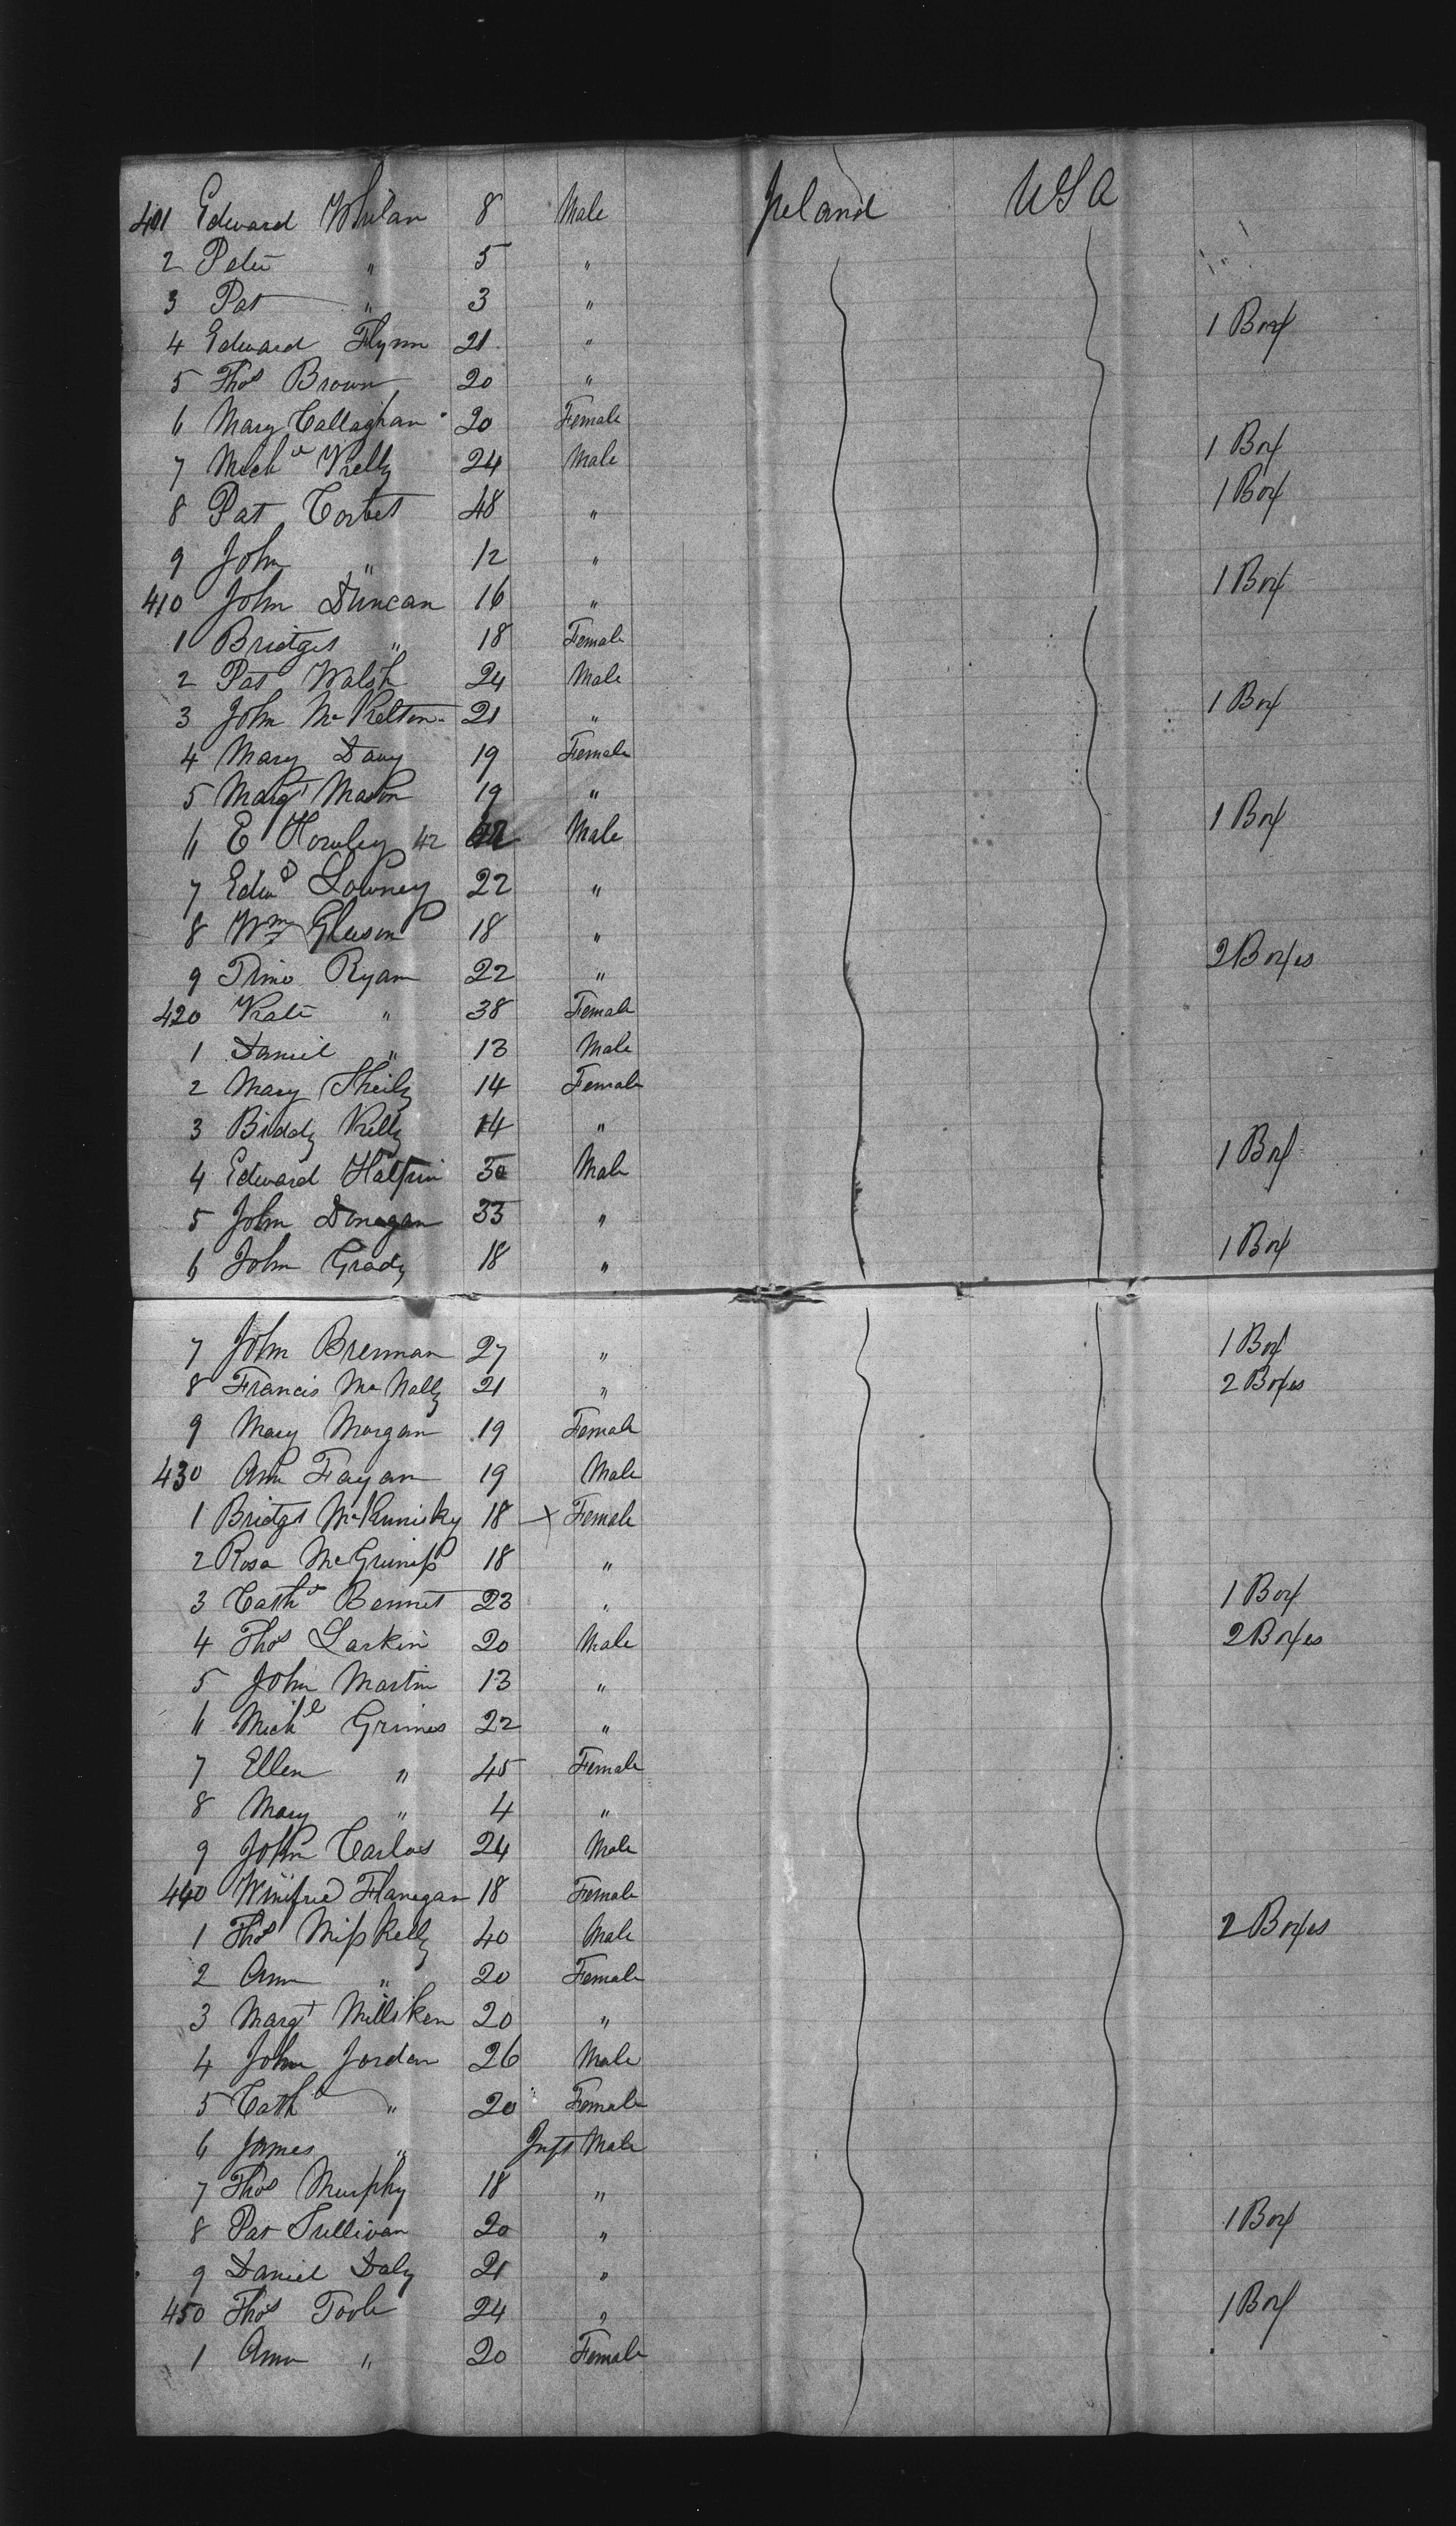 401 Edward Whelan 8 Male Ireland USA
2 Peter " 5 "
3 Pat " 3 "
4 Edward Flynn 21 " 1 Box
5 Thos Brown 20 "
6 Mary Callaghan 20 Female
7 Michl Kelly 24 Male 1 Box
8 Pat Corbet 48 " 1 Box
9 John " 12 "
410 John Duncan 16 " 1 Box
1 Bridget " 18 Female
2 Pat Walsh 24 Male
3 John McKelton 21 " 1 Box
4 Mary Davy 19 Female
5 Margt Mason 19 "
6 E Howley 42 42 Male 1 Box
7 Edwd Lowney 22 "
8 Wm Gleeson 18 "
9 Timo Ryan 22 " 2 Boxes
420 Kate " 38 Female
1 Daniel " 13 Male
2 Mary Sheily 14 Female
3 Biddy Kelly 14 "
4 Edward Halpin 30 Male 1 Box
5 John Donegan 33 "
6 John Grady 18 " 1 Box
7 John Brennan 27 " 1 Box
8 Francis McNally 21 " 2 Boxes
9 Mary Morgan 19 Female
430 Ann Fayan 19 Male
1 Bridgt 18 x Female
2 Rosa McGuiness 18 "
3 Cathe Bennet 23 " 1 Box
4 Thos Larkin 20 Male 2 Boxes
5 John Martin 13 "
6 Michl Grimes 22 "
7 Ellen " 45 Female
8 Mary " 4 "
9 John Carlos 24 Male
440 Winifred Flanegan 18 Female
1 Thos Misskelly 40 Male 2 Boxes
2 Ann " 20 Female
3 Margt Milliken 20 "
4 John Jordan 26 Male
5 Cathe " 20 Female
6 James " Inft Male
7 Thos Murphy 18 "
8 Pat Sullivan 20 " 1 Box
9 Daniel Daly 21 "
450 Thos Toole 24 " 1 Box
1 Ann " 20 Female